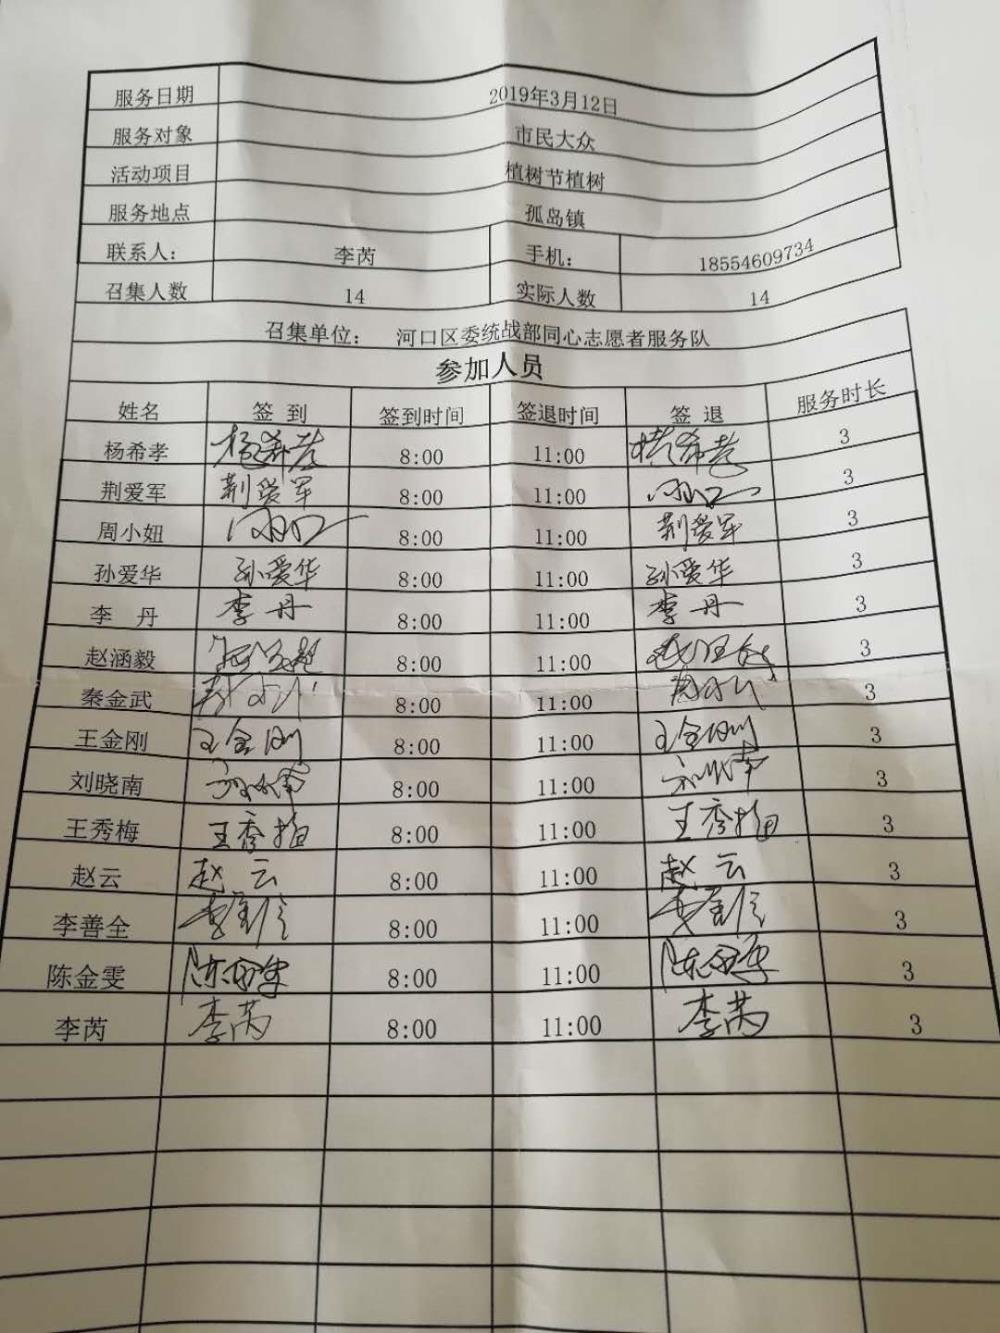 服务日期 2019年3月12日
服务对象 市民大众
活动项目 植树节植树
服务地点 孤岛镇
联系人： 李芮 手机： 18554609734
召集人数 14 实际人数 14
召集单位： 河口区委统战部同心志愿者服务队
参加人员
姓名 签 到 签到时间 签退时间 签 退 服务时长
杨希孝 杨希孝 8:00 11:00 杨希孝 3
荆爱军 荆爱军 8:00 11:00 3
周小妞 8:00 11:00 荆爱军 3
孙爱华 孙爱华 8:00 11:00 孙爱华 3
李 丹 李丹 8:00 11:00 李丹 3
赵涵毅 8:00 11:00 3
秦金武 8:00 11:00 3
王金刚 王金刚 8:00 11:00 王金刚 3
刘晓南 8:00 11:00 3
王秀梅 王秀梅 8:00 11:00 王秀梅 3
赵云 赵云 8:00 11:00 赵云 3
李善全 8:00 11:00 3
陈金雯 8:00 11:00 3
李芮 李芮 8:00 11:00 李芮 3